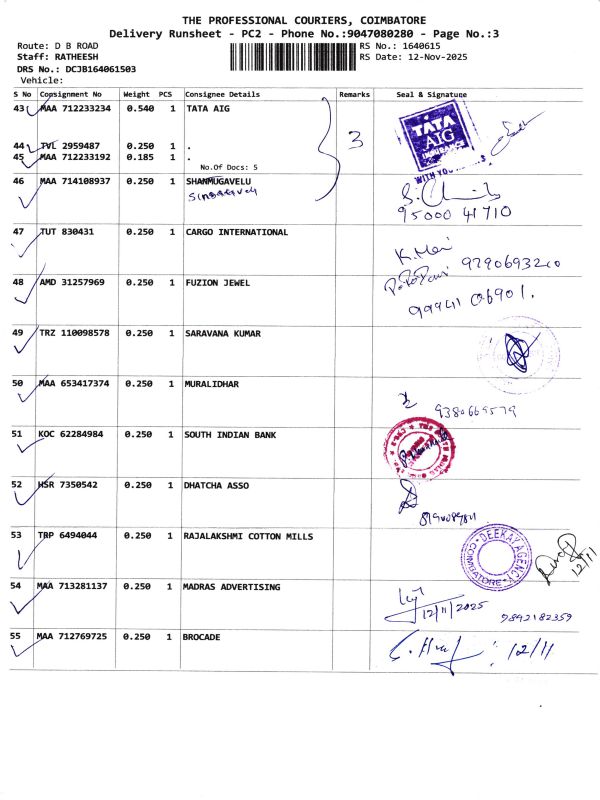 THE PROFESSIONAL COURIERS, COIMBATORE
Delivery Runsheet - PC2 - Phone No.:9047080280 - Page No.:3
Route: D B ROAD
RS No.: 1640615
Staff: RATHEESH
RS Date: 12-Nov-2025
DRS No.: DCJB164061503
Vehicle:
S No Consignment No Weight PCS Consignee Details Remarks Seal & Signature
43 MAA 712233234 0.540 1 TATA AIG
3
TATA
AIG
INSURANCE
WITH YOU
44 TVL 2959487 0.250 1 .
45 MAA 712233192 0.185 1 .
No.Of Docs: 5
46 MAA 714108937 0.250 1 SHANMUGAVELU
95000 41710
47 TUT 830431 0.250 1 CARGO INTERNATIONAL
K. Mani
9790693210
48 AMD 31257969 0.250 1 FUZION JEWEL
99941 06901.
49 TRZ 110098578 0.250 1 SARAVANA KUMAR
50 MAA 653417374 0.250 1 MURALIDHAR
9380669579
51 KOC 62284984 0.250 1 SOUTH INDIAN BANK
52 HSR 7350542 0.250 1 DHATCHA ASSO
53 TRP 6494044 0.250 1 RAJALAKSHMI COTTON MILLS
DEEKAY AGENCY
COIMBATORE
12/11
54 MAA 713281137 0.250 1 MADRAS ADVERTISING
12/11/2025 9842182359
55 MAA 712769725 0.250 1 BROCADE
12/11